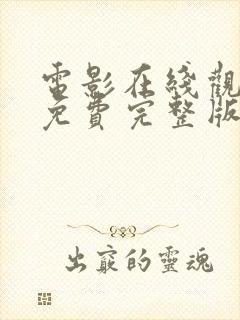 電影在綫觀
免費完整版
出竅的靈魂